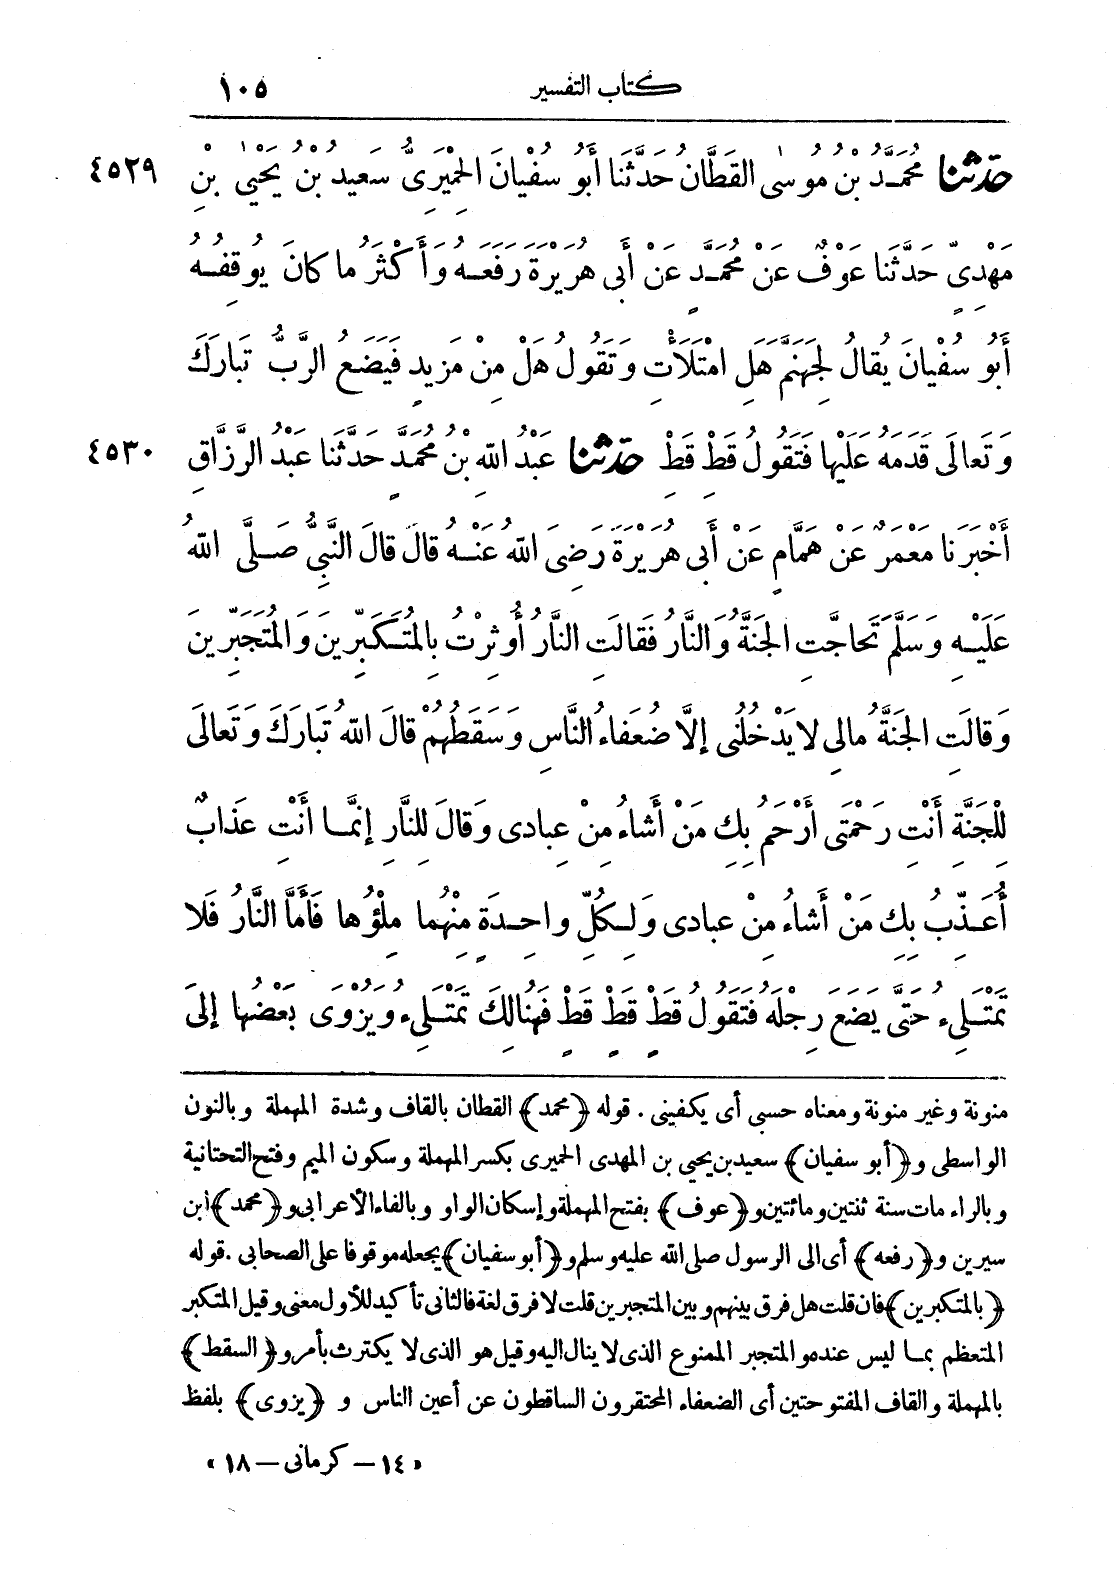 كتاب التفسير ١٠٥
حَدَّثَنَا مُحَمَّدُ بْنُ مُوسَى القَطَّانُ حَدَّثَنَا أَبُو سُفْيَانَ الحِمْيَرِىُّ سَعِيدُ بْنُ يَحْيَى بْنِ ٤٥٢٩
مَهْدِىٍّ حَدَّثَنَا عَوْفٌ عَنْ مُحَمَّدٍ عَنْ أَبِى هُرَيْرَةَ رَفَعَهُ وَأَكْثَرُ ما كانَ يُوقِفُهُ
أَبُو سُفْيانَ يُقالُ لِجَهَنَّمَ هَلِ امْتَلَأْتِ وَتَقُولُ هَلْ مِنْ مَزِيدٍ فَيَضَعُ الرَّبُّ تَبارَكَ
وَتَعالَى قَدَمَهُ عَلَيْها فَتَقُولُ قَطْ قَطْ حَدَّثَنَا عَبْدُ اللهِ بْنُ مُحَمَّدٍ حَدَّثَنا عَبْدُ الرَّزَّاقِ ٤٥٣٠
أَخْبَرَنا مَعْمَرٌ عَنْ هَمَّامٍ عَنْ أَبِى هُرَيْرَةَ رَضِىَ اللهُ عَنْهُ قالَ قالَ النَّبِىُّ صَلَّى اللهُ
عَلَيْهِ وَسَلَّمَ تَحاجَّتِ الجَنَّةُ وَالنَّارُ فَقالَتِ النَّارُ أُوثِرْتُ بِالْمُتَكَبِّرِينَ وَالْمُتَجَبِّرِينَ
وَقالَتِ الجَنَّةُ مالِى لا يَدْخُلُنِى إِلَّا ضُعَفاءُ النَّاسِ وَسَقَطُهُمْ قالَ اللهُ تَبارَكَ وَتَعالَى
لِلْجَنَّةِ أَنْتِ رَحْمَتِى أَرْحَمُ بِكِ مَنْ أَشاءُ مِنْ عِبادِى وَقالَ لِلنَّارِ إِنَّما أَنْتِ عَذَابٌ
أُعَذِّبُ بِكِ مَنْ أَشاءُ مِنْ عِبادِى وَلِكُلِّ واحِدَةٍ مِنْهُما مِلْؤُها فَأَمَّا النَّارُ فَلا
تَمْتَلِىءُ حَتَّى يَضَعَ رِجْلَهُ فَتَقُولُ قَطْ قَطْ قَطْ فَهُنالِكَ تَمْتَلِىءُ وَيُزْوَى بَعْضُها إِلَى
منونة وغير منونة ومعناه حسبى أى يكفينى . قوله ﴿محمد﴾ القطان بالقاف وشدة المهملة وبالنون
الواسطى و﴿أبو سفيان﴾ سعيد بن يحيى بن المهدى الحميرى بكسر المهملة وسكون الميم وفتح التحتانية
وبالراء مات سنة ثنتين ومائتين و﴿عوف﴾ بفتح المهملة وإسكان الواو وبالفاء الأعرابى و﴿محمد﴾ ابن
سيرين و﴿رفعه﴾ أى الى الرسول صلى الله عليه وسلم و﴿أبو سفيان﴾ يجعله موقوفا على الصحابى . قوله
﴿بالمتكبرين﴾ فان قلت هل فرق بينهم وبين المتجبرين قلت لا فرق لغة فالثانى تأكيد للأول معنى وقيل المتكبر
المتعظم بما ليس عنده والمتجبر الممنوع الذى لا ينال اليه وقيل هو الذى لا يكترث بأمر و﴿السقط﴾
بالمهملة والقاف المفتوحتين أى الضعفاء المحتقرون الساقطون عن أعين الناس و ﴿يزوى﴾ بلفظ
« ١٤ – كرمانى – ١٨ »